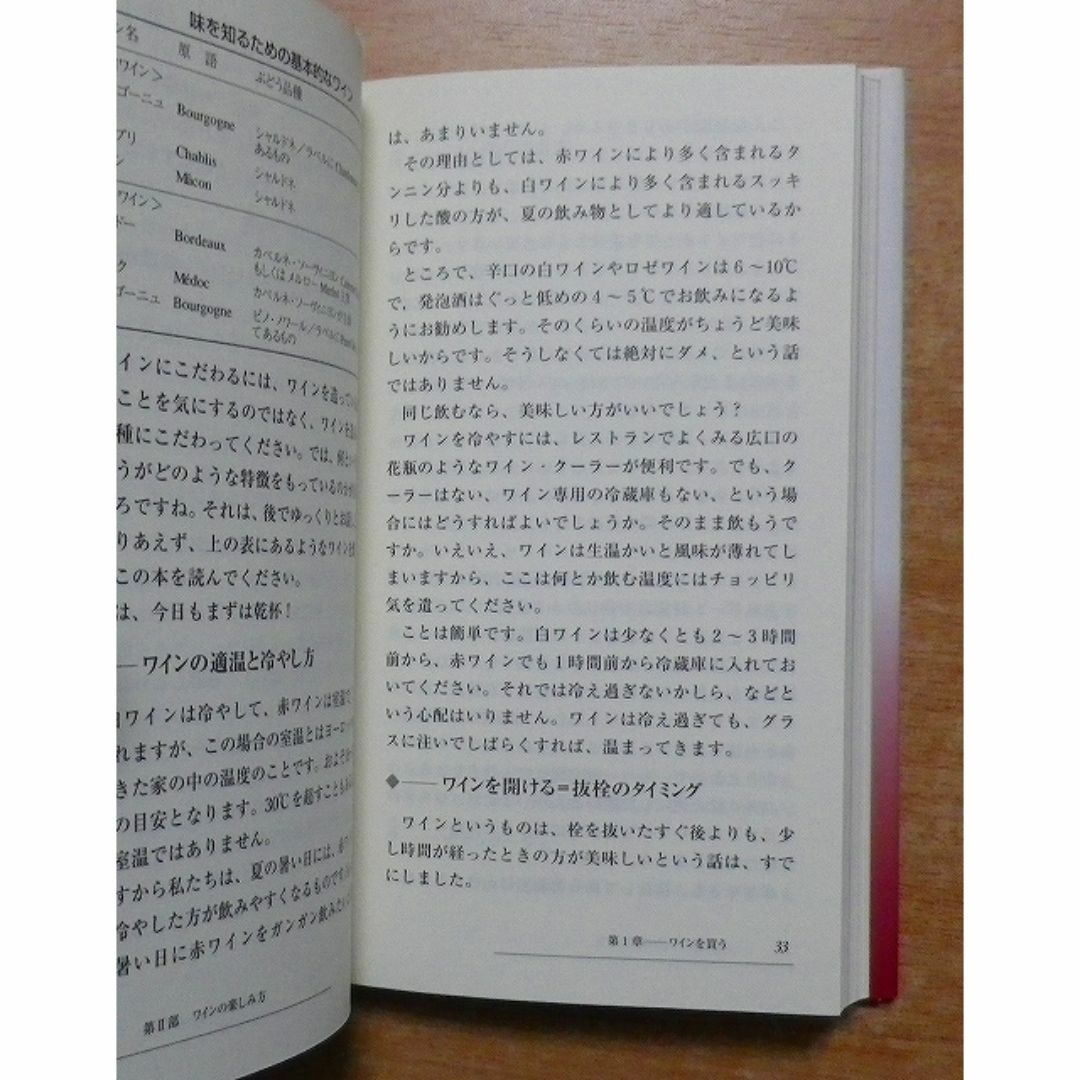 味を知るための基本的なワイン
ン名 原語 ぶどう品種
ワイン＞
ゴーニュ Bourgogne シャルドネ／ラベルに
あるもの
ブリ Chablis シャルドネ
ン Mâcon シャルドネ
ワイン＞
ドー Bordeaux カベルネ・ソーヴィニヨン
もしくはメルロー
ク Médoc カベルネ・ソーヴィニヨン
ゴーニュ Bourgogne ピノ・ノワール／ラベルに
てあるもの
インにこだわるには、ワインを造ってい
ことを気にするのではなく、ワインを
種にこだわってください。では、何と
うがどのような特徴をもっているのか
ろですね。それは、後でゆっくりとお
りあえず、上の表にあるようなワインを
この本を読んでください。
は、今日もまずは乾杯！
――ワインの適温と冷やし方
白ワインは冷やして、赤ワインは室温で
れますが、この場合の室温とはヨーロッ
きた家の中の温度のことです。およそ
の目安となります。30℃を超すことも
室温ではありません。
すから私たちは、夏の暑い日には、赤
冷やした方が飲みやすくなるものです
暑い日に赤ワインをガンガン飲みたい
第Ⅱ部 ワインの楽しみ方
は、あまりいません。
その理由としては、赤ワインにより多く含まれるタ
ンニン分よりも、白ワインにより多く含まれるスッキ
リした酸の方が、夏の飲み物としてより適しているか
らです。
ところで、辛口の白ワインやロゼワインは６～10℃
で、発泡酒はぐっと低めの４～５℃でお飲みになるよ
うにお勧めします。そのくらいの温度がちょうど美味
しいからです。そうしなくては絶対にダメ、という話
ではありません。
同じ飲むなら、美味しい方がいいでしょう？
ワインを冷やすには、レストランでよくみる広口の
花瓶のようなワイン・クーラーが便利です。でも、ク
ーラーはない、ワイン専用の冷蔵庫もない、という場
合にはどうすればよいでしょうか。そのまま飲もうで
すか。いえいえ、ワインは生温かいと風味が薄れてし
まいますから、ここは何とか飲む温度にはチョッピリ
気を遣ってください。
ことは簡単です。白ワインは少なくとも２～３時間
前から、赤ワインでも１時間前から冷蔵庫に入れてお
いてください。それでは冷え過ぎないかしら、などと
いう心配はいりません。ワインは冷え過ぎても、グラ
スに注いでしばらくすれば、温まってきます。
◆――ワインを開ける＝抜栓のタイミング
ワインというものは、栓を抜いたすぐ後よりも、少
し時間が経ったときの方が美味しいという話は、すで
にしました。
第１章――ワインを買う 33